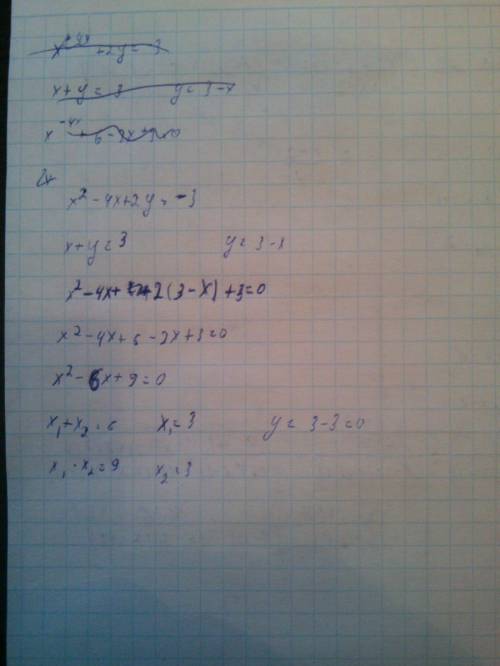 +2y = 3
x + y = 3 y = 3 - x
x² - 4x + 2y = -3
x + y = 3 y = 3 - x
x² - 4x + 2(3 - x) + 3 = 0
x² - 4x + 6 - 2x + 3 = 0
x² - 6x + 9 = 0
x₁ + x₂ = 6 x₁ = 3 y = 3 - 3 = 0
x₁ · x₂ = 9 x₂ = 3